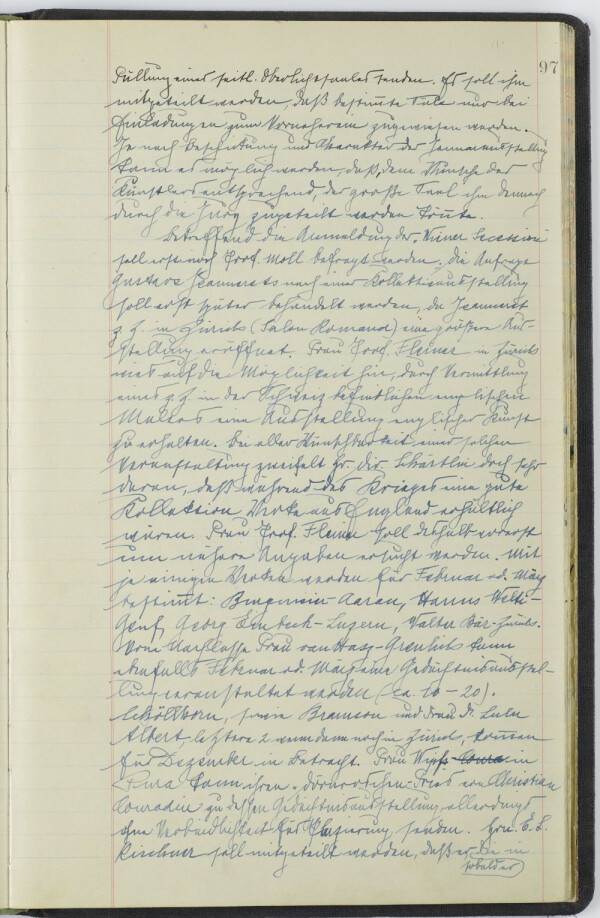 97
Füllung eines seitl. Oberlichtsaales senden. Es soll ihm
mitgeteilt werden, daß bestimmte Säle nur bei
Einladungen zum Vorneherein zugewiesen werden.
Je nach Beschickung und Charakter der Januarausstellung
kann es möglich werden, daß, dem Wunsche des
Künstlers entsprechend, der große Saal ihm dennoch
durch die Jury zugeteilt werden könnte.
Betreffend die Anmeldung der "Wiener Secession"
soll erst noch Prof. Moll befragt werden; die Anfrage
Gustave Jeannerets nach einer Kollektivausstellung
soll erst später behandelt werden, da Jeanneret
z. Z. in Zürich (Salon Romand) eine größere Aus-
stellung eröffnet. Frau Prof. Fleiner in Zürich
wies auf die Möglichkeit hin, durch Vermittlung
eines z. Z. in der Schweiz befindlichen englischen
Malers eine Ausstellung englischer Kunst
zu erhalten. Bei aller Wünschbarkeit einer solchen
Veranstaltung zweifelt Hr. Dir. Schärtlin doch sehr
daran, daß während des Krieges eine gute
Kollektion Werke aus England erhältlich
wären. Frau Prof. Fleiner soll deshalb vorerst
um nähere Angaben ersucht werden. Mit
je einigen Werken werden für Februar od. März
bestimmt: Burgmeier-Aarau, Hanns Welti-
Genf, Georg Einbeck-Luzern, Walter Bär-Zürich.
Vom Nachlasse Frau van Hasz-Greulichs kann
ebenfalls Februar od. März eine Gedächtnisausstel-
lung veranstaltet werden (ca. 10-20).
Schöllhorn, sowie Bramson und Frau Dr. Lulu
Albert, letztere 2 wenn dann noch in Zürich, kommen
für Dezember in Betracht. Frau Wipf in
kann ihren Fries von Christian
Conradin zu dessen Gedächtnisausstellung, allerdings
ohne Verbindlichkeit für Plazierung, senden. Hrn. E. L.
Kirchner soll mitgeteilt werden, daß er die in
sobald er